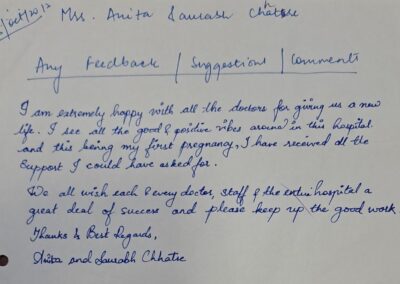 /oct/2012
Mrs. Anita Saurabh Chhatre
Any Feedback | Suggestions | Comments
I am extremely happy with all the doctors for giving us a new
life. I see all the good & positive vibes around in this hospital.
and this being my first pregnancy, I have received all the
support I could have asked for.
We all wish each & every doctor, staff & the entire hospital a
great deal of success and please keep up the good work.
Thanks & Best Regards,
Anita and Saurabh Chhatre